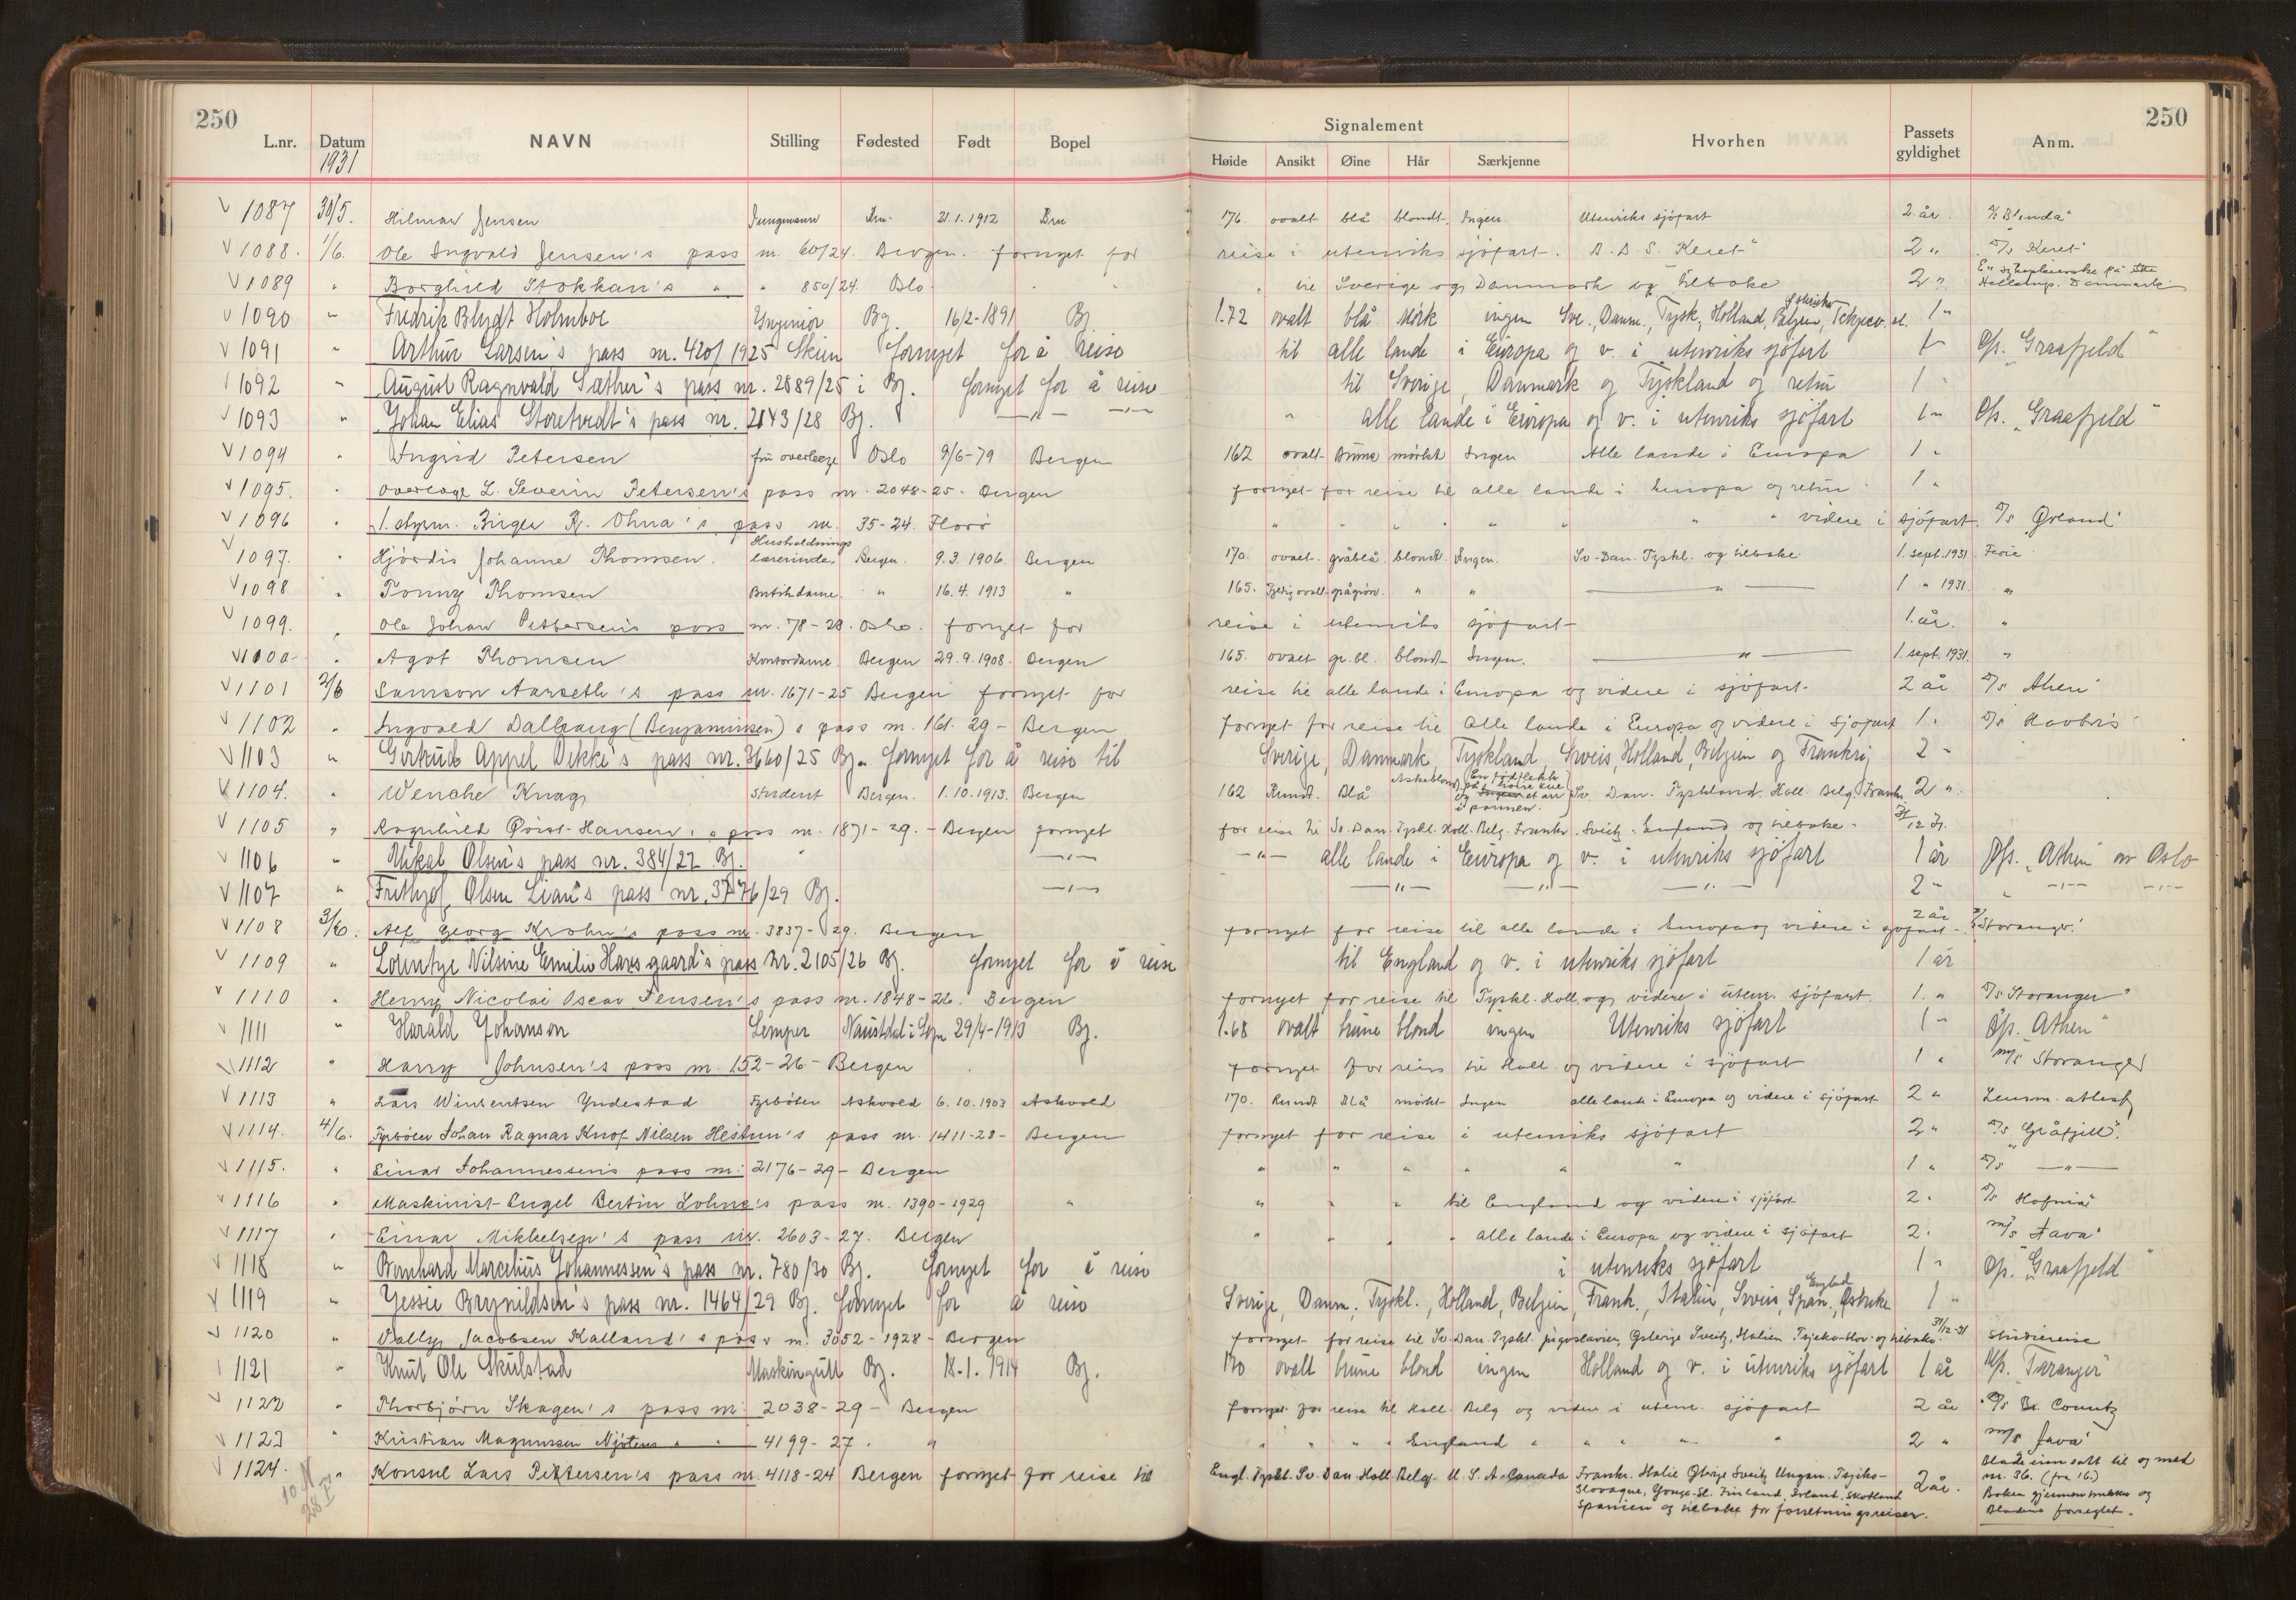 250
250
L.nr. Datum NAVN Stilling Fødested Født Bopel Signalement Hvorhen Passets gyldighet Anm.
1931 Høide Ansikt Øine Hår Særkjenne
V 1087 30/5. Hilmar Jensen Jungmann Bru 21.1.1912 Bru 176. ovalt blå blondt. Ingen. Utenriks sjöfart 2 år. "Blenda"
V 1088. 1/6. Ole Ingvald Jensen's pass nr. 60/24. Bergen. fornyet for reise i utenriks sjöfart. B.D.S. "Keret" 2 " D/s Keret"
V 1089 " Borghild Stokkan's " " 850/24. Oslo " til Sverige og Danmark og tilbake 2 " Hellerup. Danmark
V 1090 " Fredrik Blydt Holmboe Ingeniör Bg. 16/2-1891 Bg. 1.72 ovalt blå Mörk ingen Sve., Danm., Tysk., Holland, Belgien, Østrike Tchjeco.sl. 1 "
V 1091 " Arthur Larsen's pass nr. 420/1925 Skien fornyet for å reise til alle lande i Europa og v. i utenriks sjöfart 1 " D/s. "Graafjeld"
1092 " August Ragnvald Sæther's pass nr. 2889/25 i Bg. fornyet for å reise til Sverige, Danmark og Tyskland og retur 1 "
V 1093 " Johan Elias Storetvedt's pass nr. 2143/28 Bg. —"— —"— " alle lande i Europa og v. i utenriks sjöfart 1 " D/s. "Graafjeld"
V 1094 " Ingrid Petersen fru overlege Oslo 9/6-79 Bergen 162 ovalt Brune mörkt Ingen Alle lande i Europa 1 "
V 1095. " Overlege L. Severin Petersen's pass nr. 2048-25. Bergen fornyet for reise til alle lande i Europa og retur. 1 "
V 1096 " 1. styrm. Birger R. Ohna's pass nr. 35-24. Florö " " " " " " " videre i sjöfart. D/s "Ørland"
V 1097. " Hjördis Johanne Thomsen. Husholdnings lærerinde. Bergen. 9.3.1906. Bergen 170. ovalt. gråblå blondt. Ingen. Sv. Dan. Tyskl. og tilbake. 1. sept. 1931. Ferie.
V 1098 " Tonny Thomsen Butikdame. " 16.4.1913 " 165. ovalt grågrön. " " — " — 1 " 1931. "
V 1099. " Ole Johan Pettersen's pass nr. 78-28. Oslo. fornyet for reise i utenriks sjöfart 1. år. "
V 1100 " Agot Thomsen Kontordame. Bergen 29.9.1908. Bergen 165. ovalt gr. bl. blondt Ingen. — " — 1. sept. 1931. "
V 1101 2/6 Samson Aarseth's pass nr. 1671-25 Bergen fornyet for reise til alle lande i Europa og videre i sjöfart. 2 år D/s Athen"
V 1102 " Ingvald Dalhaug (Benjaminsen)s pass nr. 161. 29 - Bergen fornyet for reise til alle lande i Europa og videre i sjöfart 1 "
V 1103 " Gertrud Appel Dekke's pass nr. 3660/25 Bg. fornyet for å reise til Sverige, Danmark, Tyskland, Sveis, Holland, Belgien og Frankrig 2 "
V 1104. " Wenche Knag Student Bergen. 1.10.1913. Bergen 162 Rundt. Blå Askeblond En födflekk og et arr i pannen. Sv. Dan. Tyskland. Holl. Belg. Frankr. 2 "
V 1105 " Ragnhild Qvist-Hansen's pass nr. 1871-29. - Bergen fornyet for reise til Sv. Dan. Tyskl. Holl. Belg. Frankr. Sveitz. England og tilbake. 31/12 31.
V 1106 " Mikal Olsen's pass nr. 384/27 Bg. —"— —"— alle lande i Europa og v. i utenriks sjöfart 1 år D/s. "Athen" av Oslo
V 1107 " Frithjof Olsen Lian's pass nr. 3776/29 Bg. —"— —"— —"— —"— 2 " " —"— —"—
V 1108 3/6. Alf Georg Krohn's pass nr. 3837-29. Bergen fornyet for reise til alle lande i Europa og videre i sjöfart. 2 år Storanger.
V 1109 " Lorentze Nilsine Emilie Havsgaard's pass nr. 2105/26 Bg. fornyet for å reise til England og v. i utenriks sjöfart 1 år
V 1110 " Henry Nicolai Oscar Jensen's pass nr. 1848-26. Bergen fornyet for reise til Tyskl. Holl. og videre i utenr. sjöfart. 1. " Storanger"
V 1111 " Harald Johanson Lemper Naustdal i Sogn 29/4-1913 Bg. 1.68 ovalt brune blond ingen Utenriks sjöfart 1 " D/s. Athen"
V 1112 " Harry Johnsen's pass nr. 152-26 - Bergen fornyet for reise til Holl. og videre i sjöfart 1 " m/s Storanger
V 1113 " Lars Winsentsen Yndestad Fyrböter Askvoll 6.10.1903 Askvoll 170. Rundt Blå mörkt Ingen alle lande i Europa og videre i sjöfart 2 " Lensm. attest
V 1114. 4/6. Fyrböter Johan Ragnar Knof Nilsen Hestnes's pass nr. 1411-28 - Bergen fornyet for reise i utenriks sjöfart 2 " D/s "Gråfjell".
V 1115. " Einar Johannessen's pass nr. 2176-29 - Bergen " " " " " " 1 " D/s —"—
V 1116 " Maskinist Engel Bertin Lohne's pass nr. 1390-1929 " " " " til England og videre i sjöfart 2. D/s Hofnia"
V 1117 " Einar Mikkelsen's pass nr. 2603-27. Bergen " " " " alle lande i Europa og videre i sjöfart 2. m/s Java"
V 1118 " Bernhard Marcelius Johannessen's pass nr. 780/30 Bg. fornyet for å reise i utenriks sjöfart 1 " D/s. "Graafjeld"
V 1119 " Jessie Brynildsen's pass nr. 1464/29 Bg. fornyet for å reise Sverige, Danm., Tyskl., Holland, Belgien, Frank., Italien, Sveis, Span., England Østrike 1 "
V 1120 " Vally Jacobsen Kalland's pass nr. 3052-1928 - Bergen fornyet for reise til Sv. Dan. Tyskl. Jugoslavien, Østerige Sveitz, Italien Tsjeko-slov. og tilbake. 31/12-31 Studiereise
1121 " Knut Ole Skulstad Maskingutt Bg. 18.1.1914 Bg. 170 ovalt brune blond ingen Holland og v. i utenriks sjöfart 1 år M/s. "Taranger"
V 1122 " Thorbjörn Skagen's pass nr. 2038-29 - Bergen fornyet for reise til Holl. Belg og videre i utenr. sjöfart 2 år D/s Br. County
V 1123 " Kristian Magnussen Njötens " " 4199-27. " " " " " England " " " " " 2 " m/s Java"
V 1124. " Konsul Lars Pettersen's pass nr. 4118-24 Bergen fornyet for reise til Engl. Tyskl. Sv. Dan. Holl. Belg. U.S.A. Canada Frankr. Italie Østrige Sveitz Ungarn. Tsjeko-slovaque, Finland, Irland, Skotland Spanien og tilbake for forretningsreiser. 2 år. Blade innsatt til og med nr. 36. (fra 16.) Boken gjennemtrukket og Bladene forseglet.